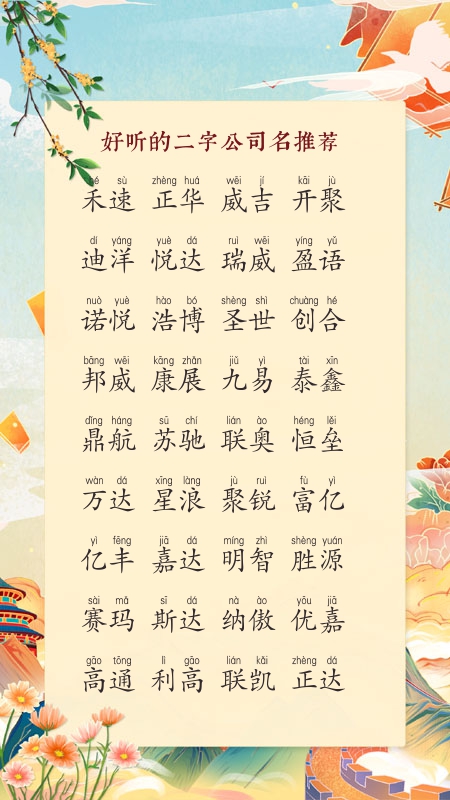 好听的二字公司名推荐
hé sù zhèng huá wēi jí kāi jù
禾速 正华 威吉 开聚
dí yáng yuè dá ruì wēi yíng yǔ
迪洋 悦达 瑞威 盈语
nuò yuè hào bó shèng shì chuàng hé
诺悦 浩博 圣世 创合
bāng wēi kāng zhǎn jiǔ yì tài xīn
邦威 康展 九易 泰鑫
dǐng háng sū chí lián ào héng lěi
鼎航 苏驰 联奥 恒垒
wàn dá xīng làng jù ruì fù yì
万达 星浪 聚锐 富亿
yì fēng jiā dá míng zhì shèng yuán
亿丰 嘉达 明智 胜源
sài mǎ sī dá nà ào yōu jiā
赛玛 斯达 纳傲 优嘉
gāo tōng lì gāo lián kǎi zhèng dá
高通 利高 联凯 正达